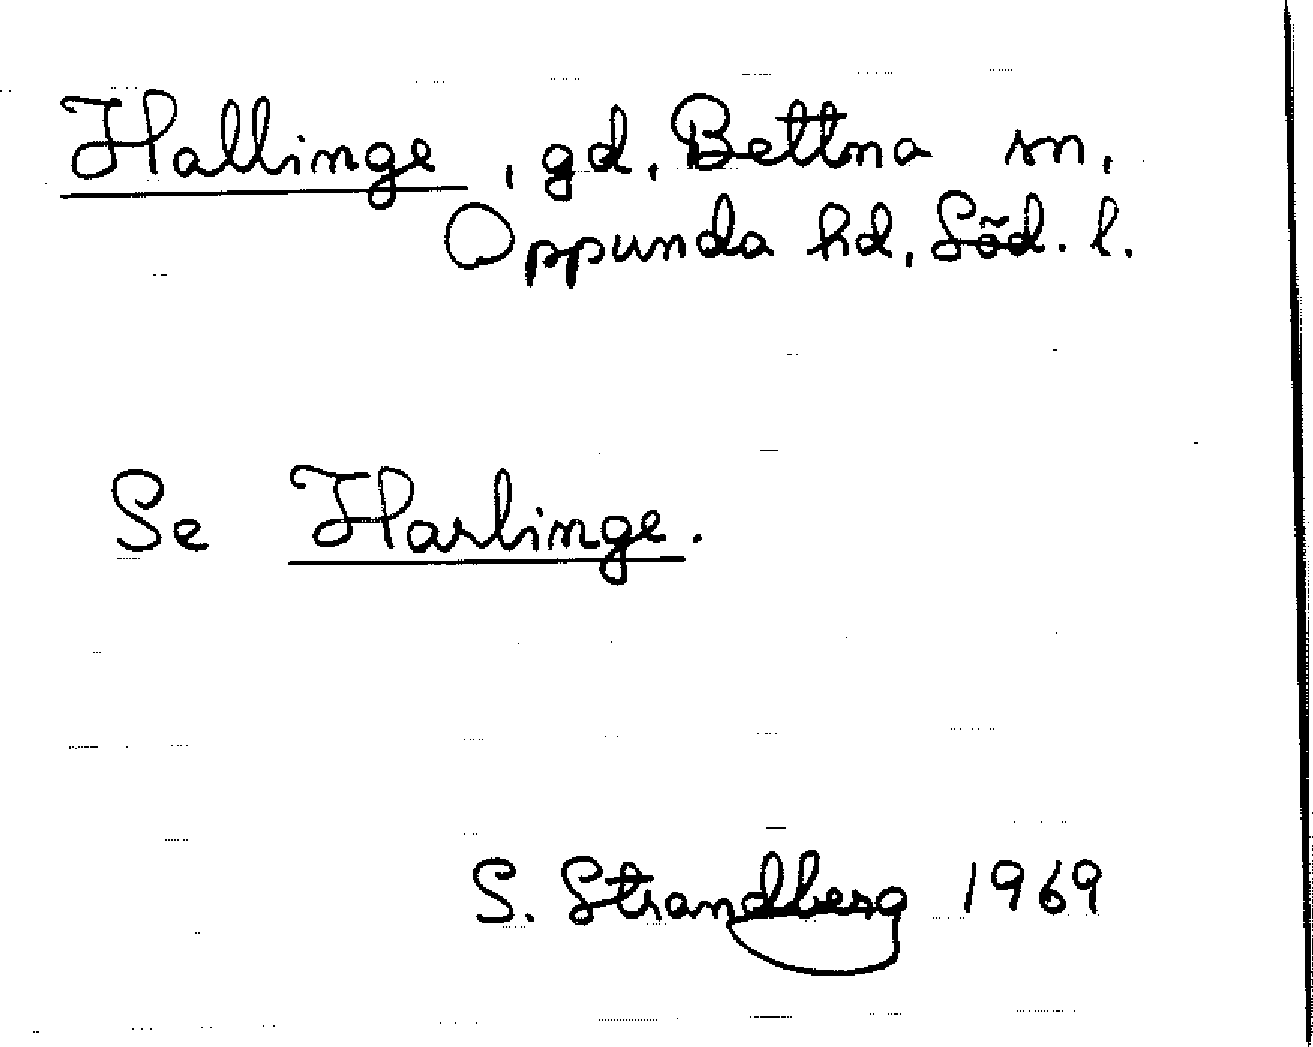 Hallinge, gd, Bettna sn,
Oppunda hd, Söd. l.
Se Harlinge.
S. Strandberg 1969